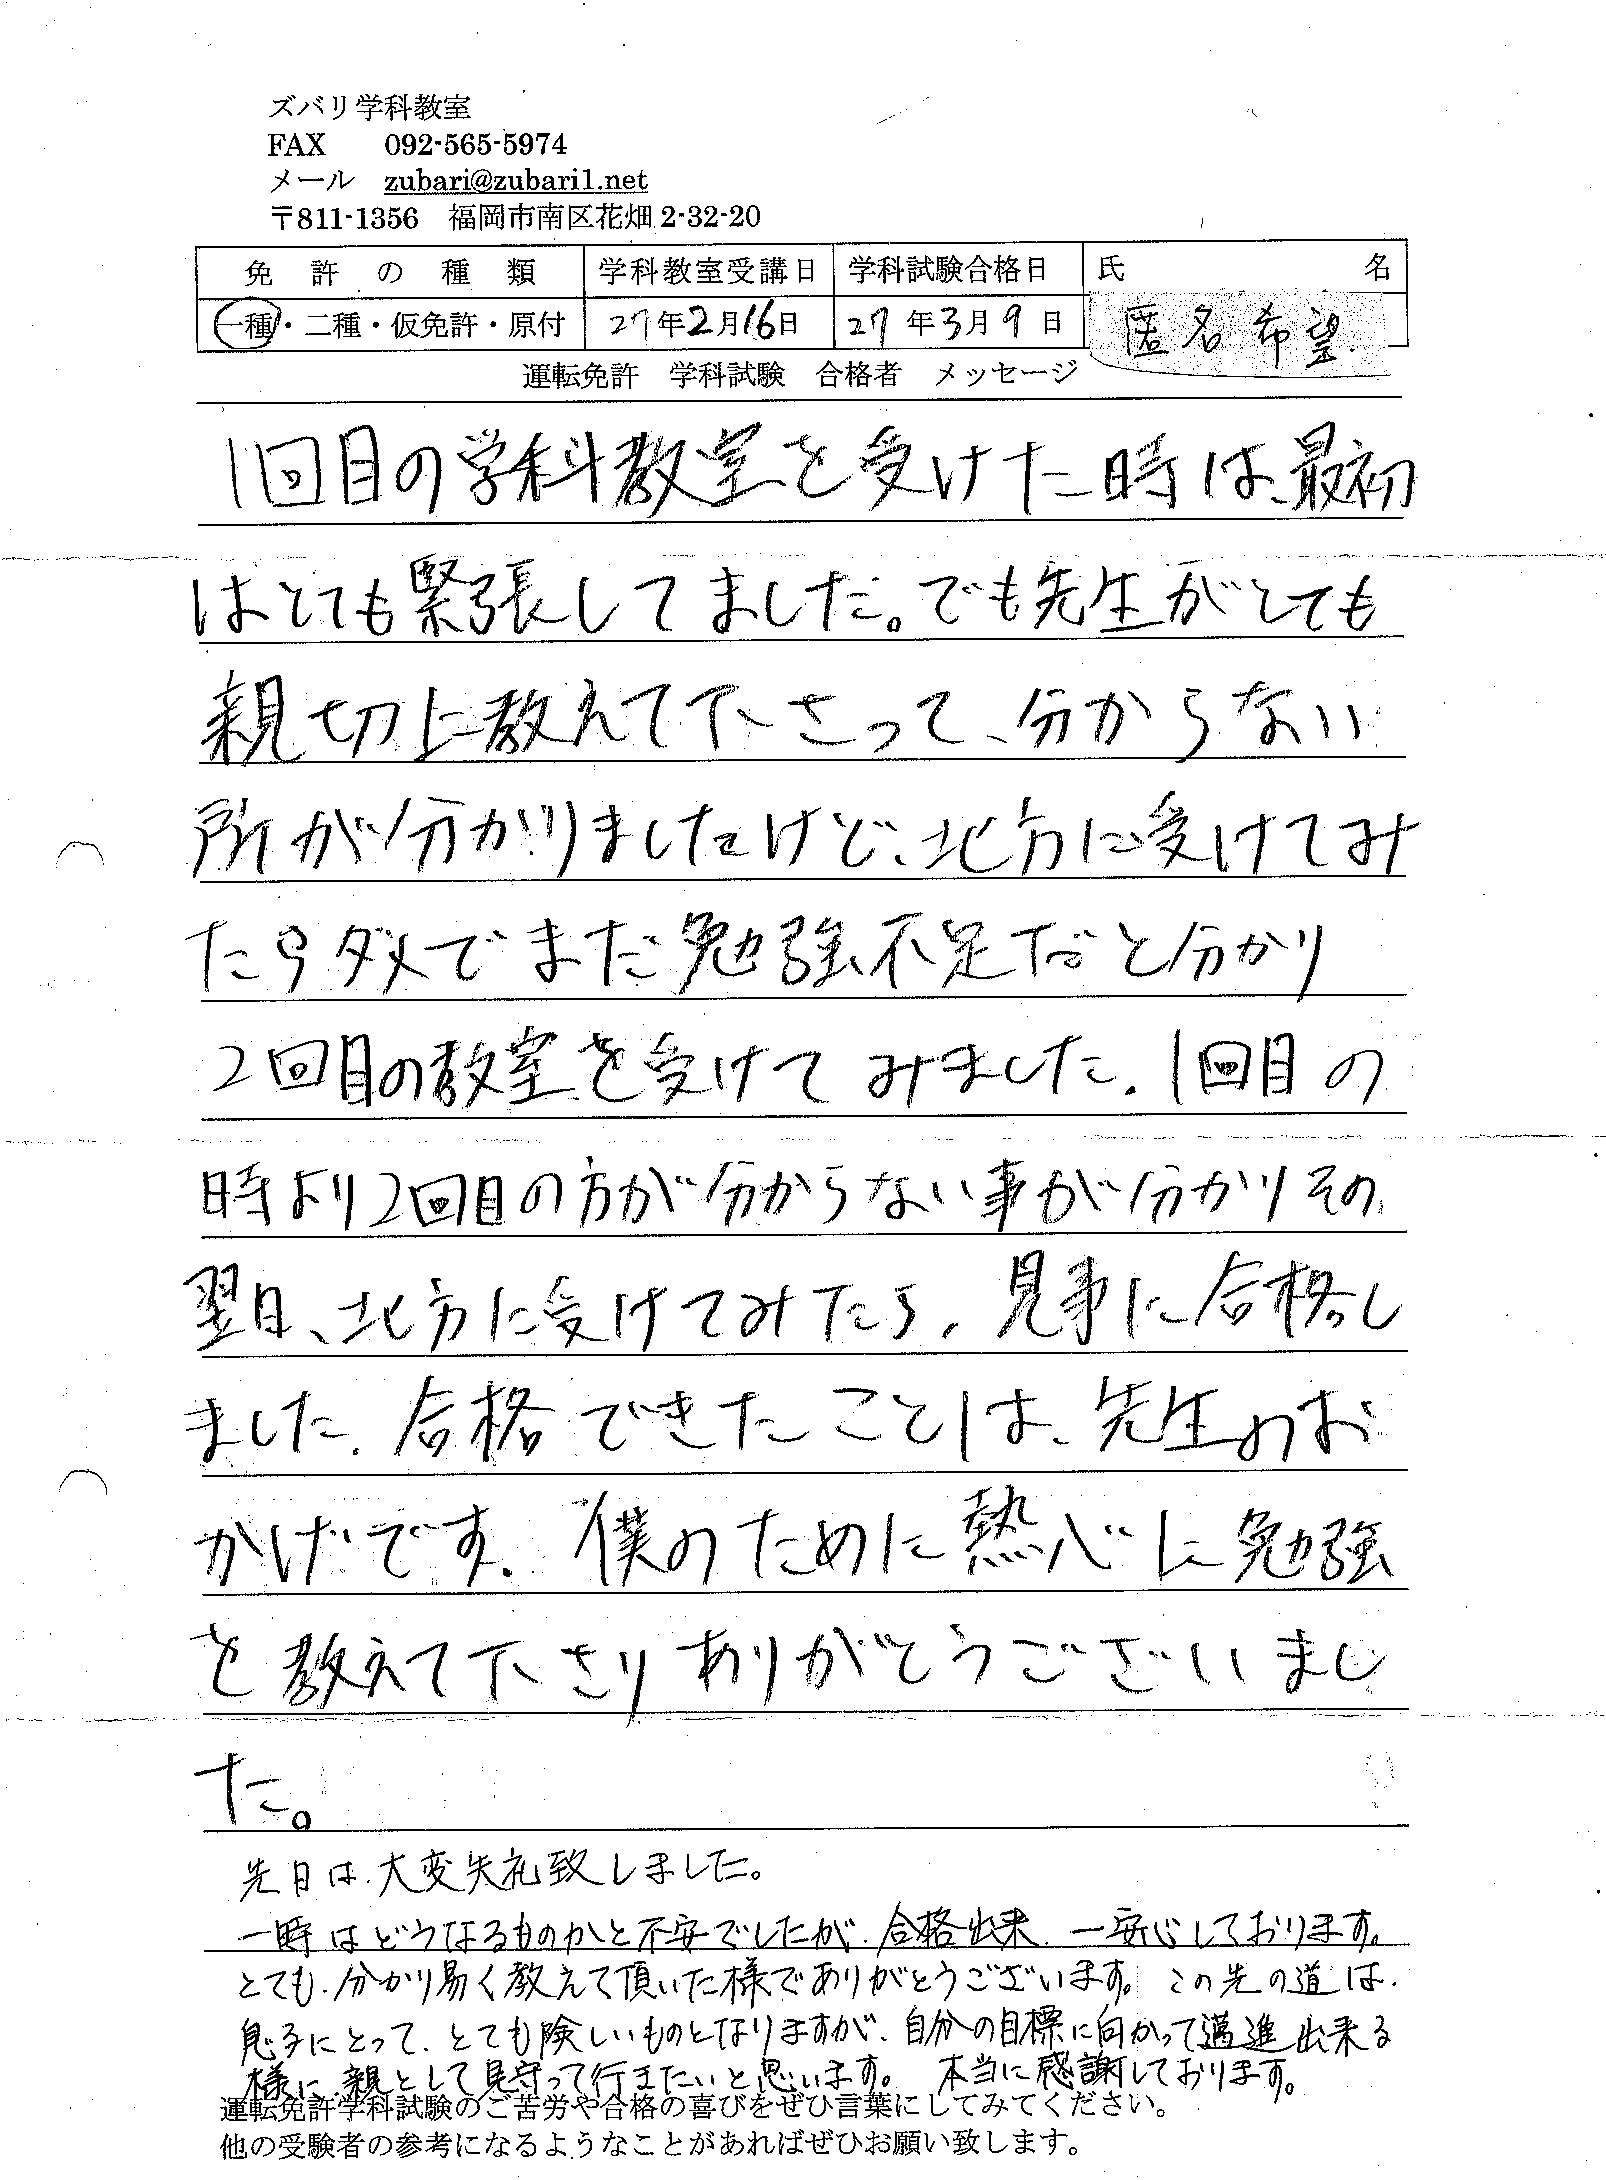 ズバリ学科教室
FAX 092-565-5974
メール zubari@zubari1.net
〒811-1356 福岡市南区花畑 2-32-20
免許の種類 学科教室受講日 学科試験合格日 氏名
一種・二種・仮免許・原付 27年2月16日 27年3月9日 匿名希望
運転免許 学科試験 合格者 メッセージ
1回目の学科教室を受けた時は、最初
はとても緊張してました。でも先生がとても
親切に教えて下さって、分からない
所が分かりましたけど、地方に受けてみ
たらダメでまだ勉強不足だと分かり
2回目の教室を受けてみました。1回目の
時より2回目の方が分からない事が分かりその
翌日、地方に受けてみたら、見事に合格し
ました。合格できたことは、先生のお
かげです。僕のために熱心に勉強
を教えて下さりありがとうございまし
た。
先日は、大変失礼致しました。
一時はどうなるものかと不安でしたが、合格出来、一安心しております。
とても、分かり易く教えて頂いた様でありがとうございます。この先の道は、
息子にとって、とても険しいものとなりますが、自分の目標に向かって邁進出来る
様に、親として見守って行きたいと思います。 本当に感謝しております。
運転免許学科試験のご苦労や合格の喜びをぜひ言葉にしてみてください。
他の受験者の参考になるようなことがあればぜひお願い致します。